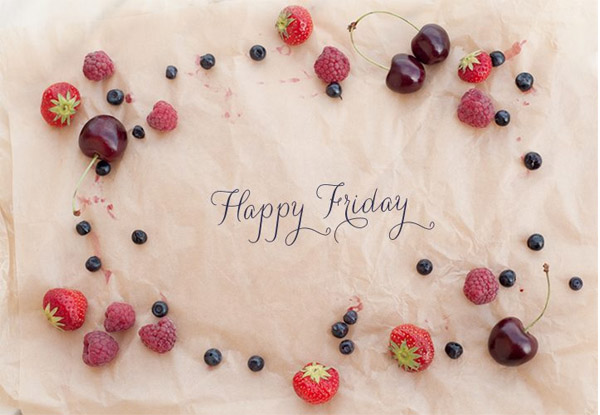 Happy Friday